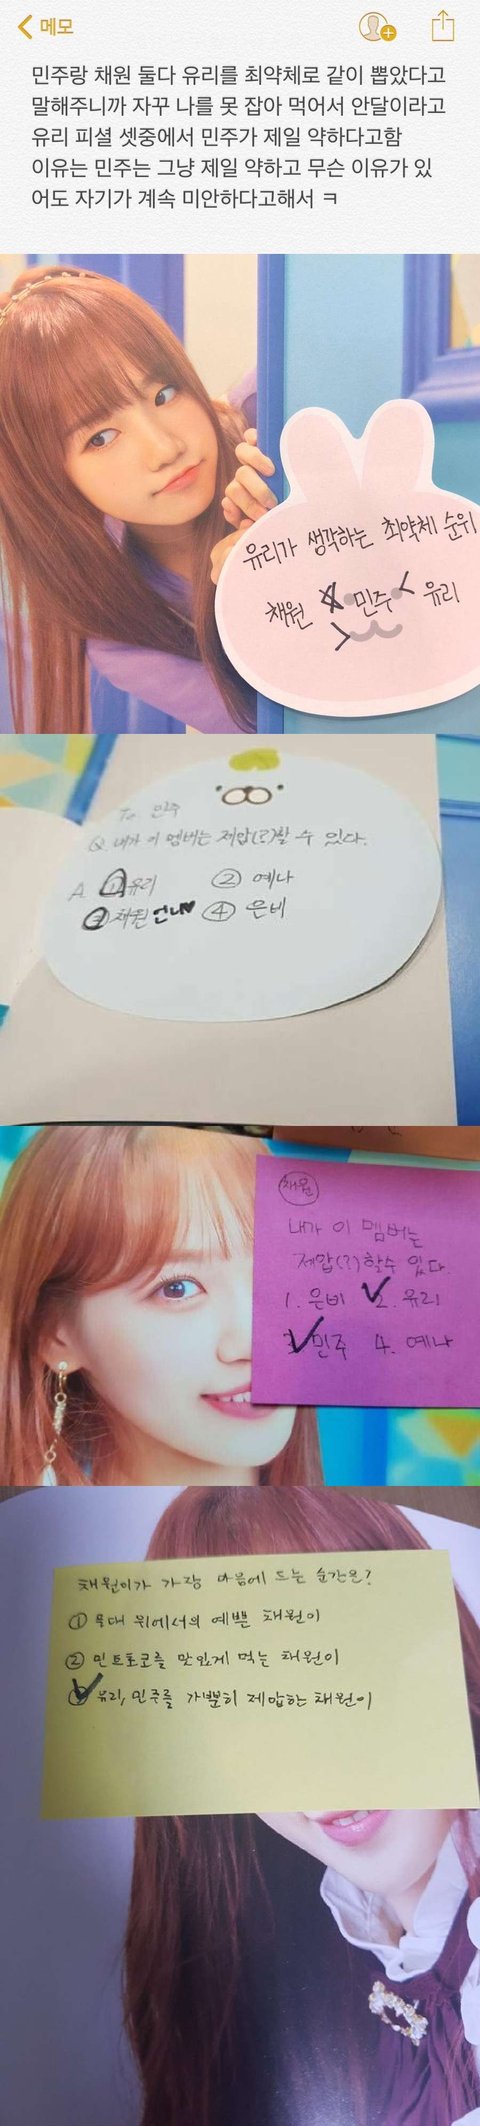 메모
민주랑 채원 둘다 유리를 최약체로 같이 뽑았다고
말해주니까 자꾸 나를 못 잡아 먹어서 안달이라고
유리 피셜 셋중에서 민주가 제일 약하다고함
이유는 민주는 그냥 제일 약하고 무슨 이유가 있
어도 자기가 계속 미안하다고해서 ㅋ
유리가 생각하는 최약체 순위
채원 민주 < 유리
>
To. 민주
Q. 내가 이 멤버는 제압(?)할 수 있다.
A. ① 유리 ② 예나
③ 채원 언니♥ ④ 은비
채원
내가 이 멤버는
제압(?)할수 있다.
1. 은비 2. 유리
3. 민주 4. 예나
채원이가 가장 마음에 드는 순간은?
① 무대 위에서의 예쁜 채원이
② 민트초코를 맛있게 먹는 채원이
③ 유리, 민주를 가뿐히 제압하는 채원이